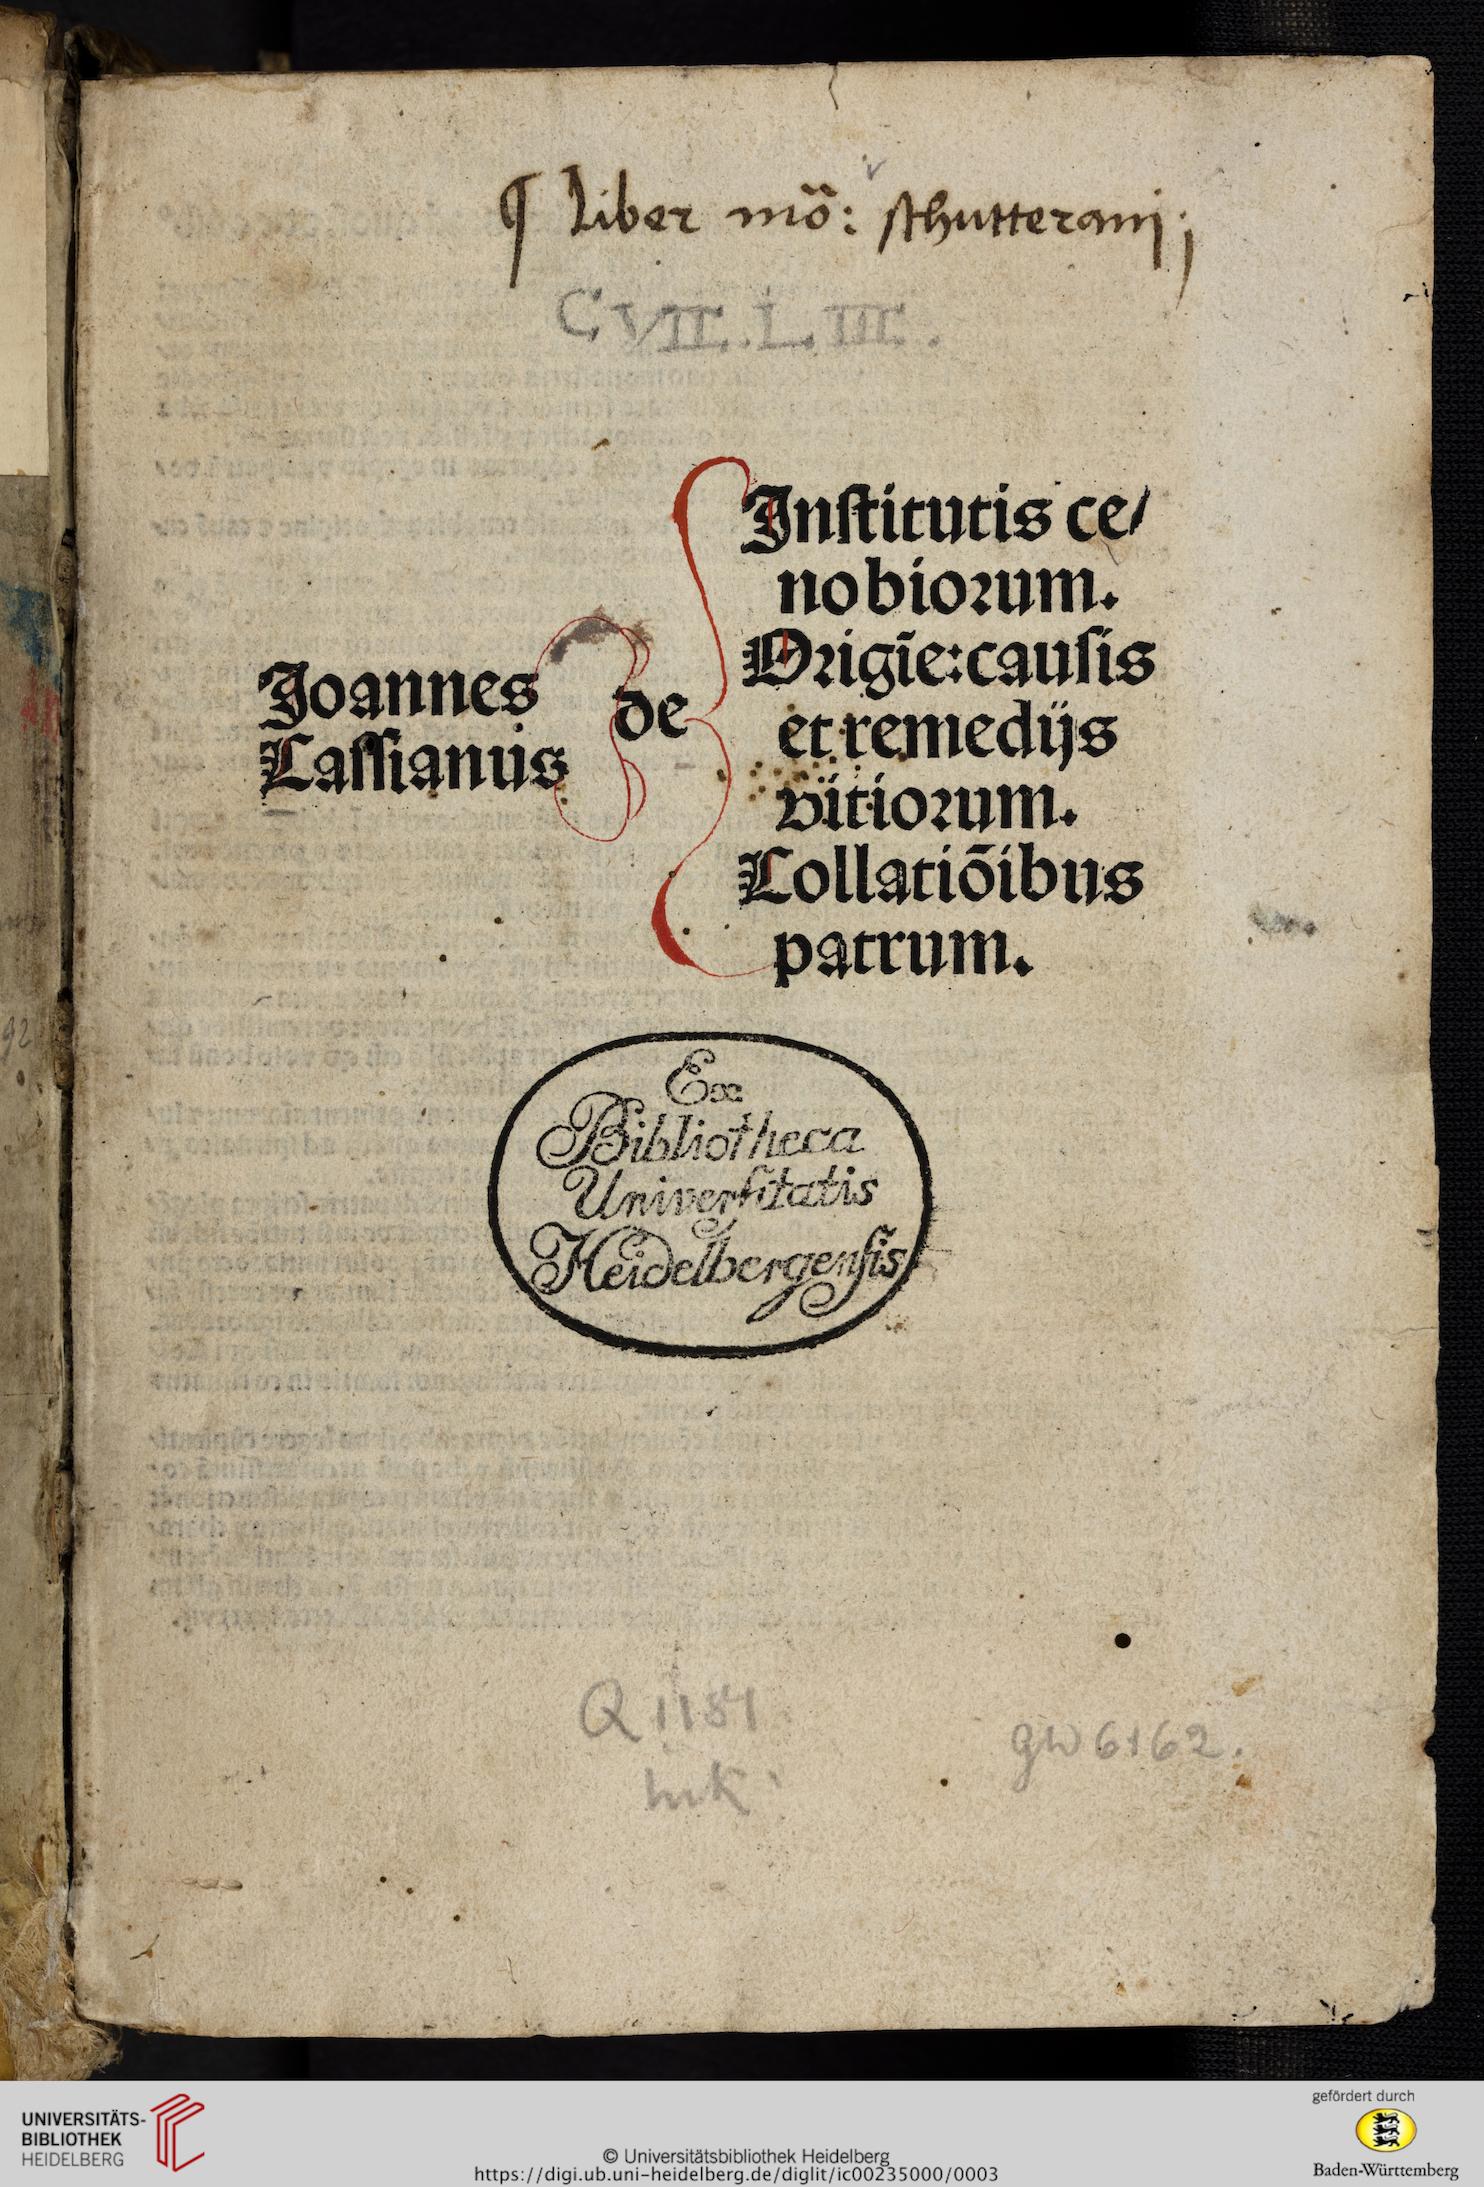 ¶ Liber mo͞: schutterani;
C VII. L. III.
Joannes
Cassianus
de
Institutis ce/
nobiorum.
Origīe: causis
et remedijs
vitiorum.
Collatiōibus
patrum.
Ex
Bibliotheca
Universitatis
Heidelbergensis
Q 1181
GW 6162.
92
UNIVERSITÄTS-
BIBLIOTHEK
HEIDELBERG
© Universitätsbibliothek Heidelberg
https://digi.ub.uni-heidelberg.de/diglit/ic00235000/0003
gefördert durch
Baden-Württemberg